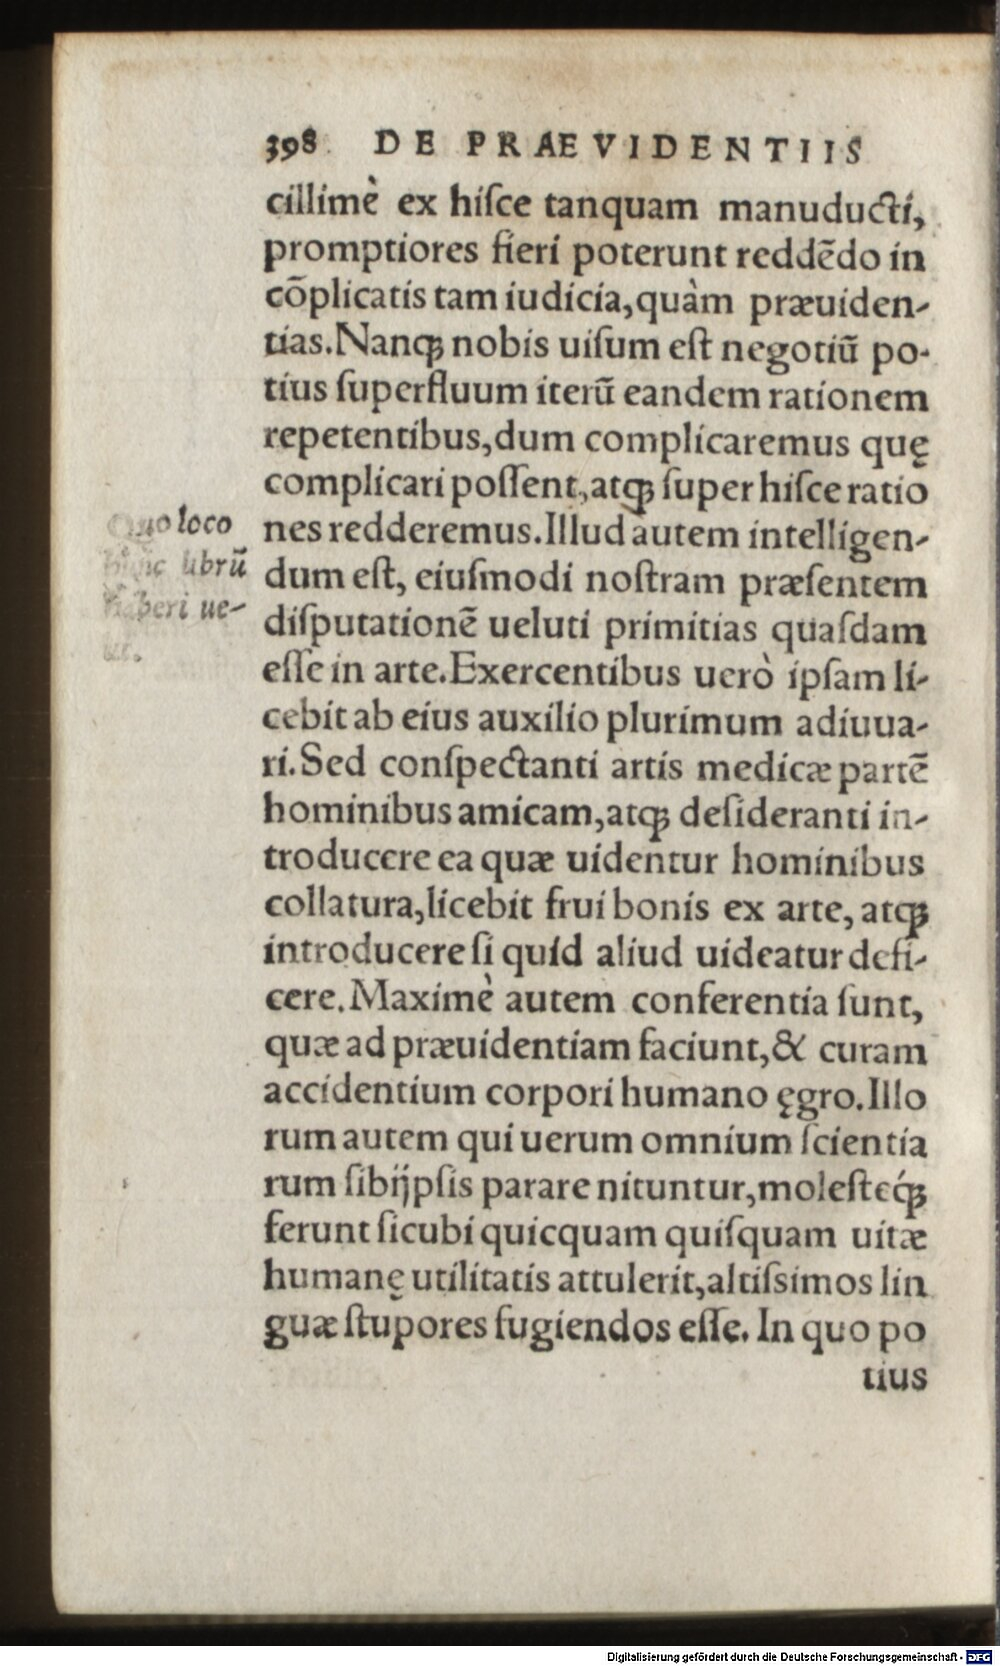 398 DE PRÆVIDENTIIS
cillimè ex hiſce tanquam manuducti,
promptiores fieri poterunt reddēdo in
cōplicatis tam iudicia, quàm præuiden-
tias. Nanqꝫ nobis uiſum eſt negotiū po-
tius ſuperfluum iterū eandem rationem
repetentibus, dum complicaremus quę
complicari poſſent, atqꝫ ſuper hiſce ratio
nes redderemus. Illud autem intelligen-
dum eſt, eiuſmodi noſtram præſentem
diſputationē ueluti primitias quaſdam
eſſe in arte. Exercentibus uerò ipſam li-
cebit ab eius auxilio plurimum adiuua-
ri. Sed conſpectanti artis medicæ partē
hominibus amicam, atqꝫ deſideranti in-
troducere ea quæ uidentur hominibus
collatura, licebit frui bonis ex arte, atqꝫ
introducere ſi quid aliud uideatur defi-
cere. Maximè autem conferentia ſunt,
quæ ad præuidentiam faciunt, & curam
accidentium corpori humano ęgro. Illo
rum autem qui uerum omnium ſcientia
rum ſibijpſis parare nituntur, moleſteq́ꝫ
ferunt ſicubi quicquam quiſquam uitæ
humanę utilitatis attulerit, altiſsimos lin
guæ ſtupores fugiendos eſſe. In quo po
tius
Quo loco
librū
haberi ue-
Digitalisierung gefördert durch die Deutsche Forschungsgemeinschaft - DFG